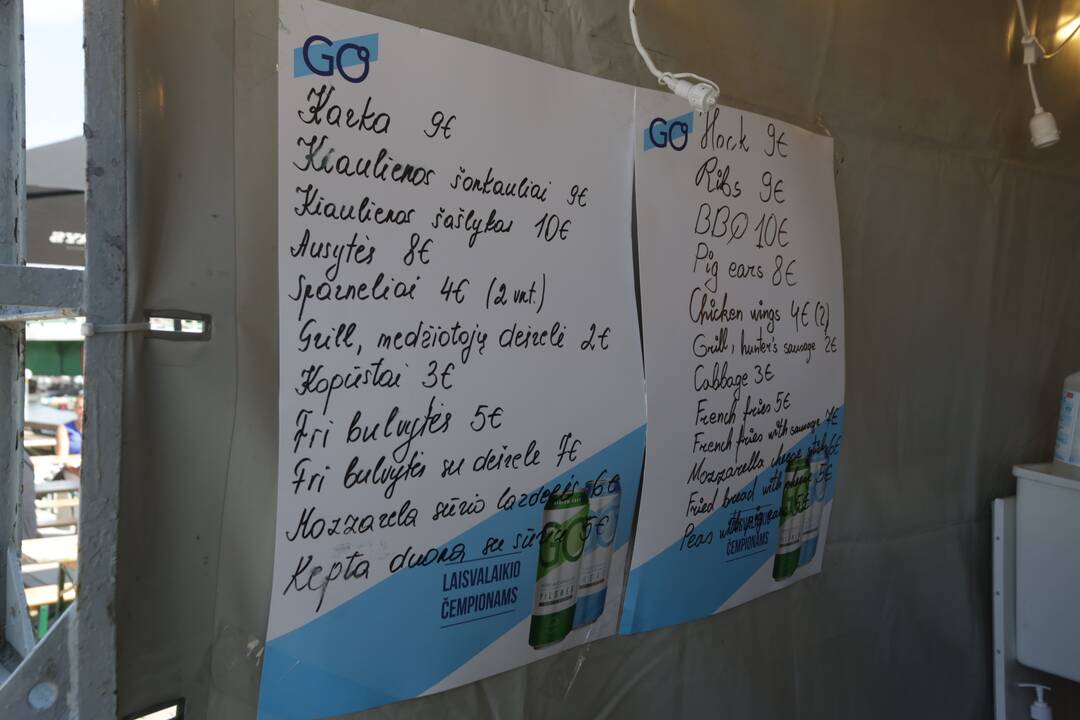 GO
Karka 9€
Kiaulienos šonkauliai 9€
Kiaulienos šašlykas 10€
Ausytės 8€
Sparneliai 4€ (2 vnt.)
Grill, medžiotojų dešrelė 2€
Kopūstai 3€
Fri bulvytės 5€
Fri bulvytės su dešrele 7€
Mozzarela sūrio lazdelės 6€
Kepta duona su sūriu 5€
LAISVALAIKIO
ČEMPIONAMS
GO
PILSNER
GO
Hock 9€
Ribs 9€
BBQ 10€
Pig ears 8€
Chicken wings 4€ (2)
Grill, hunter's sausage 2€
Cabbage 3€
French fries 5€
French fries with sausage 7€
Mozzarella cheese sticks 6€
Fried bread with cheese 5€
Peas with pig ears
ČEMPIONAMS